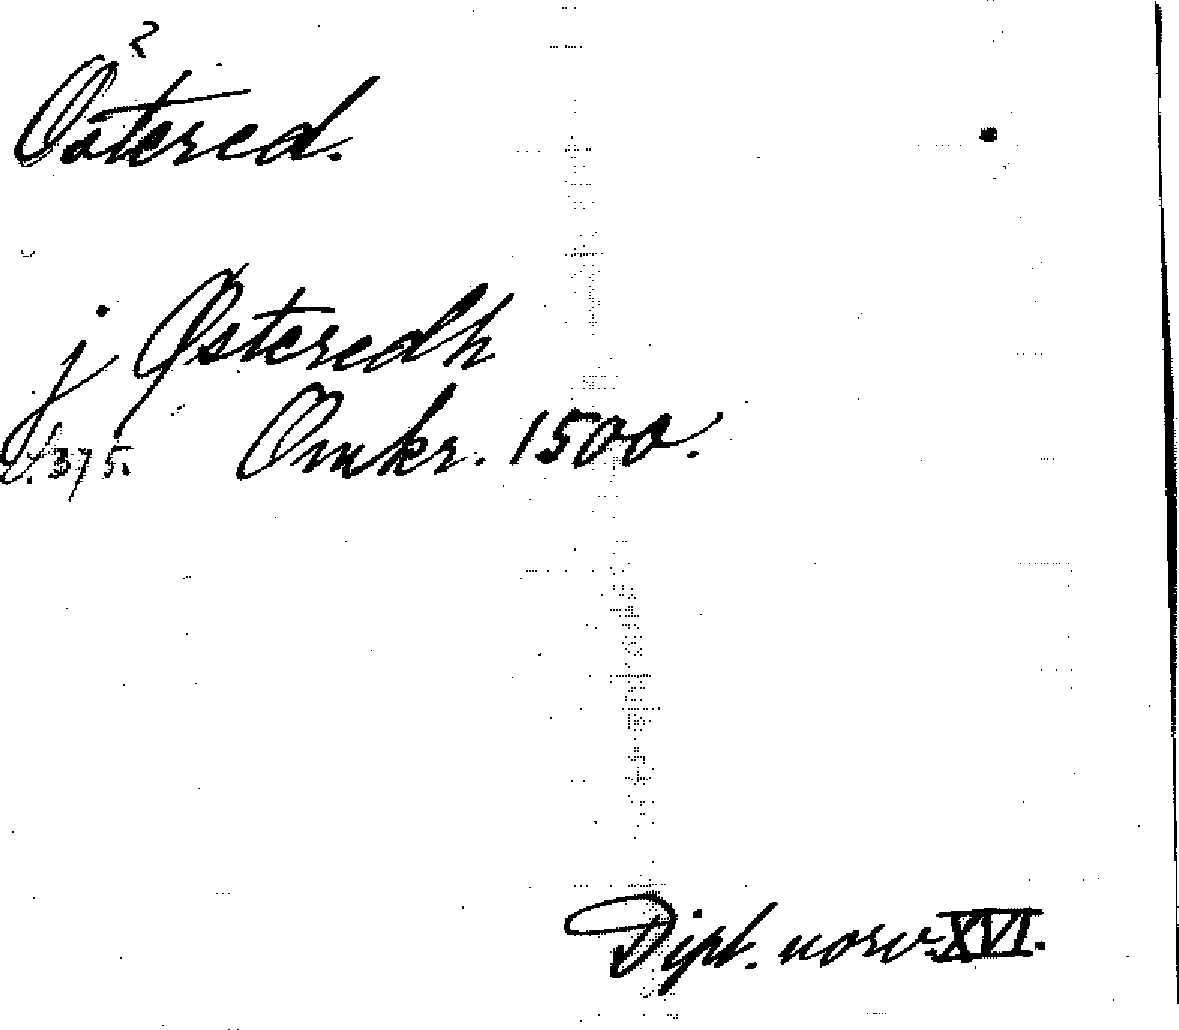 2
Östered.
j Østeredh
s. 375. Omkr. 1500.
Dipl. norv. XVI.